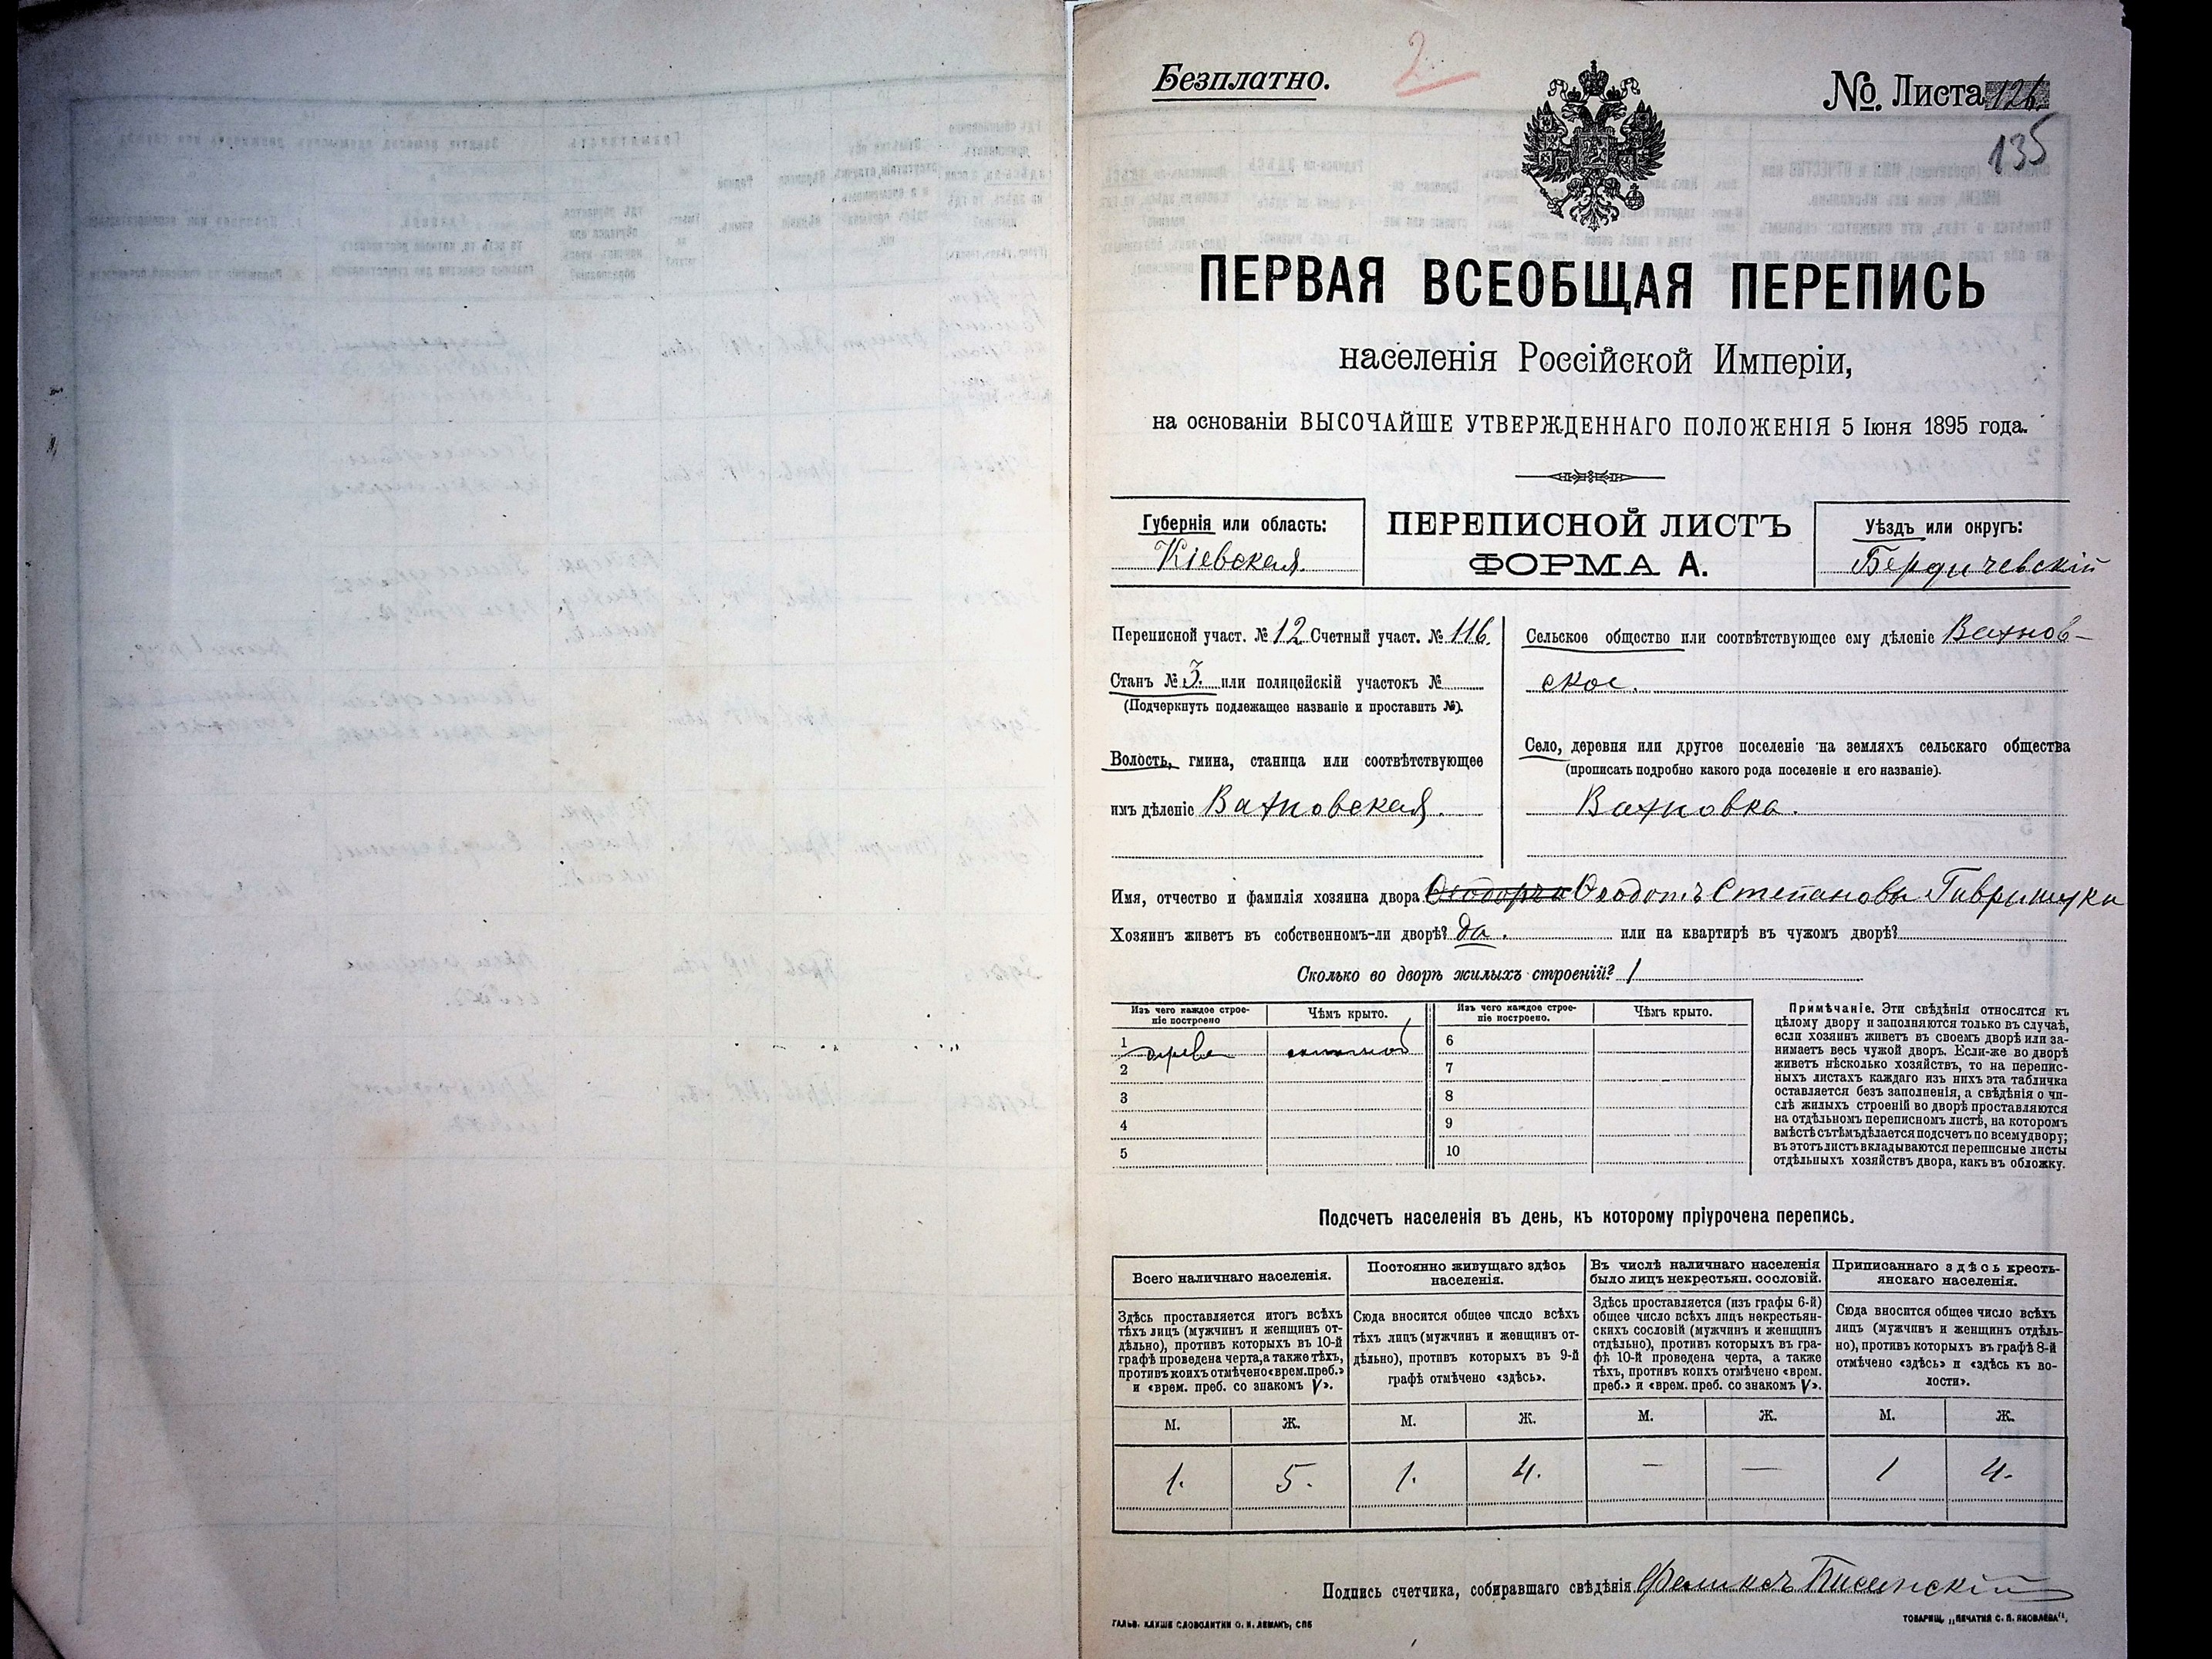 Безплатно.
2
№. Листа 126.
135
ПЕРВАЯ ВСЕОБЩАЯ ПЕРЕПИСЬ
населенія Россійской Имперіи,
на основаніи ВЫСОЧАЙШЕ УТВЕРЖДЕННАГО ПОЛОЖЕНІЯ 5 Іюня 1895 года.
Губернія или область:
Кіевская.
ПЕРЕПИСНОЙ ЛИСТЪ
ФОРМА А.
Уѣздъ или округъ:
Бердичевскій
Переписной участ. № 12 Счетный участ. № 116.
Станъ № 3. или полицейскій участокъ №
(Подчеркнуть подлежащее названіе и проставить №).
Волость, гмина, станица или соотвѣтствующее
имъ дѣленіе Вахновская.
Сельское общество или соотвѣтствующее ему дѣленіе Вахнов-
ское.
Село, деревня или другое поселеніе на земляхъ сельскаго общества
(прописать подробно какого рода поселеніе и его названіе).
Вахновка.
Имя, отчество и фамилія хозяина двора Ѳеодотъ Степановъ Гаврищука
Хозяинъ живетъ въ собственномъ-ли дворѣ? да. или на квартирѣ въ чужомъ дворѣ?
Сколько во дворѣ жилыхъ строеній? 1
Изъ чего каждое строе-
ніе построено
Чѣмъ крыто.
Изъ чего каждое строе-
ніе построено.
Чѣмъ крыто.
1 дерева соломой 6
2 7
3 8
4 9
5 10
Примѣчаніе. Эти свѣдѣнія относятся къ
цѣлому двору и заполняются только въ случаѣ,
если хозяинъ живетъ въ своемъ дворѣ или за-
нимаетъ весь чужой дворъ. Если-же во дворѣ
живетъ нѣсколько хозяйствъ, то на перепис-
ныхъ листахъ каждаго изъ нихъ эта табличка
оставляется безъ заполненія, а свѣдѣнія о чи-
слѣ жилыхъ строеній во дворѣ проставляются
на отдѣльномъ переписномъ листѣ, на которомъ
вмѣстѣ съ тѣмъ дѣлается подсчетъ по всему двору;
въ этотъ листъ вкладываются переписные листы
отдѣльныхъ хозяйствъ двора, какъ въ обложку.
Подсчетъ населенія въ день, къ которому пріурочена перепись.
Всего наличнаго населенія.
Постоянно живущаго здѣсь
населенія.
Въ числѣ наличнаго населенія
было лицъ некрестьян. сословій.
Приписаннаго здѣсь кресть-
янскаго населенія.
Здѣсь проставляется итогъ всѣхъ
тѣхъ лицъ (мужчинъ и женщинъ от-
дѣльно), противъ которыхъ въ 10-й
графѣ проведена черта, а также тѣхъ,
противъ коихъ отмѣчено «врем. преб.»
и «врем. преб. со знакомъ V».
Сюда вносится общее число всѣхъ
тѣхъ лицъ (мужчинъ и женщинъ от-
дѣльно), противъ которыхъ въ 9-й
графѣ отмѣчено «здѣсь».
Здѣсь проставляется (изъ графы 6-й)
общее число всѣхъ лицъ некрестьян-
скихъ сословій (мужчинъ и женщинъ
отдѣльно), противъ которыхъ въ гра-
фѣ 10-й проведена черта, а также
тѣхъ, противъ коихъ отмѣчено «врем.
преб.» и «врем. преб. со знакомъ V».
Сюда вносится общее число всѣхъ
лицъ (мужчинъ и женщинъ отдѣль-
но), противъ которыхъ въ графѣ 8-й
отмѣчено «здѣсь» и «здѣсь къ во-
лости».
М. Ж. М. Ж. М. Ж. М. Ж.
1. 5. 1. 4. — — 1 4.
Подпись счетчика, собиравшаго свѣдѣнія Феликсъ
ГАЛЬВ. КЛИШЕ СЛОВОЛИТНИ О. И. ЛЕМАНЪ, СПБ
ТОВАРИЩ. „ПЕЧАТНЯ С. П. ЯКОВЛЕВА".